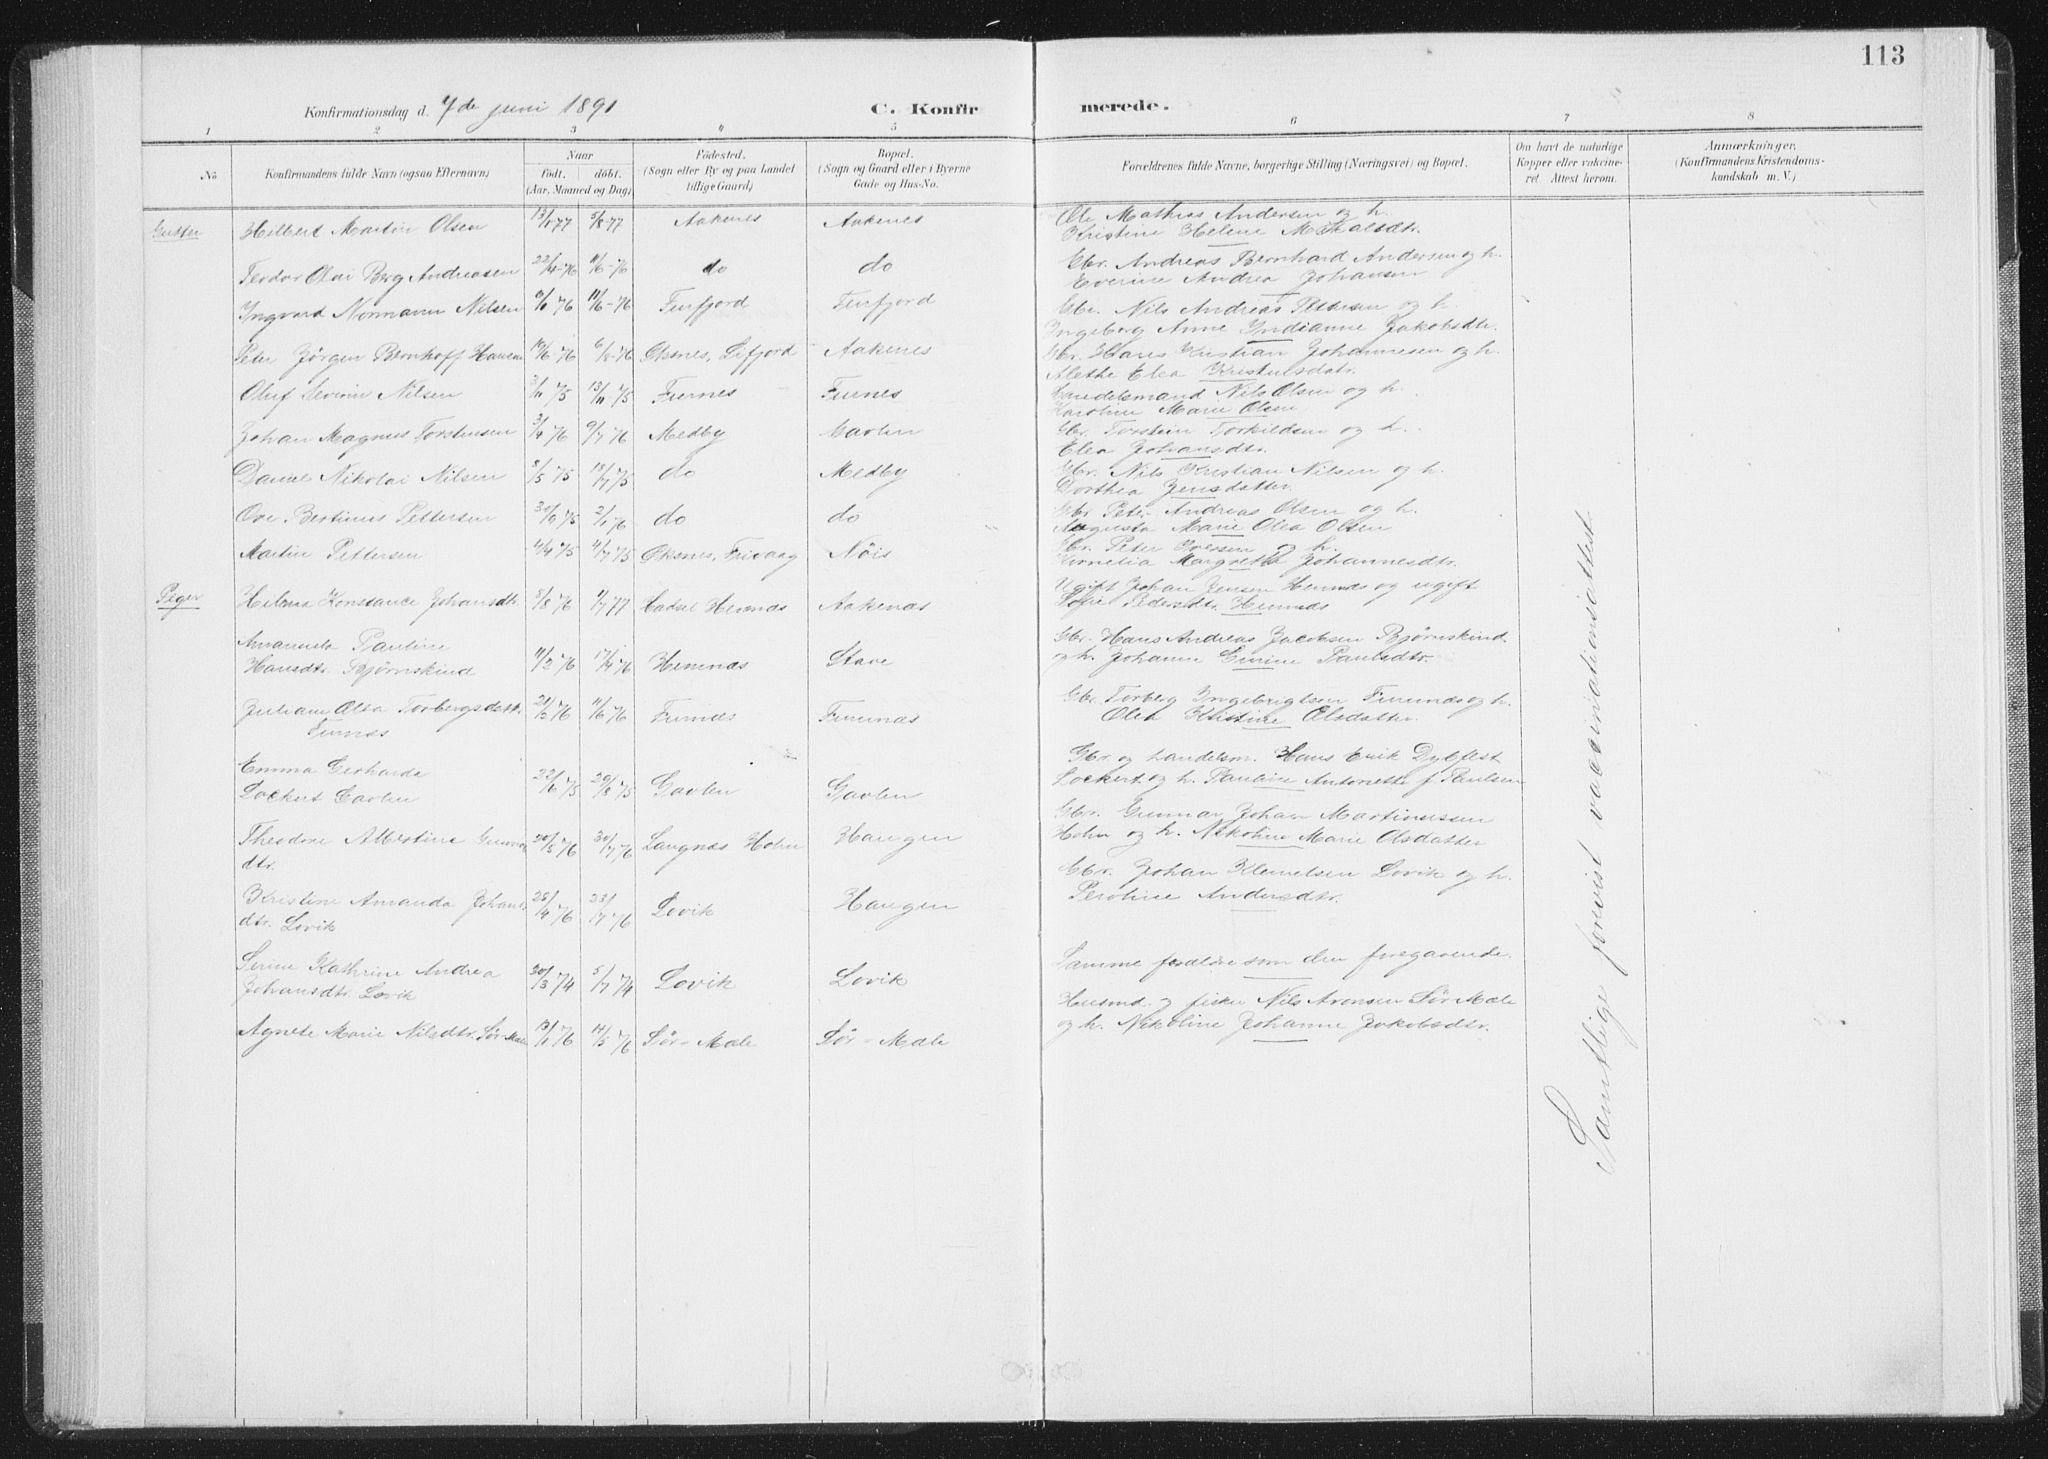 113
Konfirmationsdag d. 7de juni 1891 C. Konfirmerede.
1 2 3 4 5 6 7 8
No. Konfirmandens fulde Navn (ogsaa Efternavn) Naar født. døbt. (Aar, Maaned og Dag) Fødested. (Sogn eller By og paa Landet tillige Gaard) Bopæl. (Sogn og Gaard eller i Byerne Gade og Hus-No. Forældrenes fulde Navne, borgerlige Stilling (Næringsvei) og Bopæl. Om havt de naturlige Kopper eller vakcineret. Attest herom. Anmærkninger. (Konfirmandens Kristendomskundskab m. V.)
Gutter Hilbert Martin Olsen 13/1 77 5/8 77 Aakenes Aakenes Ole Mathias Andersen og h.
Kristine Helene
Teodor Olai Berg Andreasen 22/4-76 11/6-76 do do Gbr. Andreas Bernhard Andersen og h.
Everine Andrea Johansen
Ingvard Normann Nilsen 76 11/6-76 Fiurfjord Fiurfjord Gbr. Nils Andreas Pettersen og h.
Ingeborg Anne Indianne Jakobsdtr.
Peter Jörgen Bernhoff Hansen 76 76 Øksnes, Aakenes Gbr. Hans Kristian Johannesen og h.
Alethe Elea
Oluf Severin Nilsen 3/11 75 13/11 75 Fiurnes Fiurnes Handelsmand Nils Olsen og h.
Karoline Marie Olsen
Johan Magnus Torstensen 3/4 76 9/7 76 Medby Gavlen Gbr. Torstein Torkildsen og h.
Elea Johansdtr.
Daniel Nikolai Nilsen 8/5 75 18/7 75 do Medby Gbr. Nils Kristian Nilsen og h.
Dorthea Jensdatter
Ove Bertinus Pettersen 30/9 75 2/1 76 do do Gbr. Peter Andreas Olsen og h.
Augusta Marie Olea Olsen
Martin Pettersen 4/4 75 4/7 75 Øksnes, Nöis Gbr. Peter Iversen og h.
Kornelia Margrethe Johannesdtr.
Piger Hilma Konstance Johansdtr. 8/8 76 77 Hadsel Aakenæs Ugift Johan Jensen Hennæs og ugift
Sofie Pedersdtr. Hennæs
Amanuela Pauline
Hansdtr. Bjørnskind 11/2 76 17/4 76 Stave Gbr. Hans Andreas Jacobsen Bjørnskind
og h. Johanne Emine Paulsdtr.
Juliane Olea Torbergsdatt. 76 11/6 76 Fiurnæs Gbr. Torberg Ingebrigtsen og h.
Olea Kristine Olsdatter.
Emma Gerharda
Lockert Gavlen 22/6 75 29/8 75 Gavlen Gavlen Gbr. og handelsm. Hans Erik Dybfest
Lockert og h. Pauline Antonette f. Paulsen
Theodora Albertine Gunnar
dtr. 20/5 76 30/7 76 Langnæs Holm Haugen Gbr. Gunnar Johan Martinussen
Holm og h. Nikoline Marie Olsdatter
Kristine Amanda Johans
dtr. Lovik 25/4 76 23/7 76 Lovik Haugen Gbr. Johan Klemetsen Lovik og h.
Peroline Andersdtr.
Serine Kathrine Andrea
Johansdtr. Lovik 30/3 74 5/7 74 Lovik Lovik Samme forældre som den foregaaende.
Agnete Marie Nilsdtr. Sör-Mæle 13/1 76 14/5 76 Sör-Mæle Sör-Mæle Husmd. og fisker Nils Aronsen Sör Mæle
og h. Nikoline Johanne Jakobsdtr.
Samtlige forevist vaccinationsattest